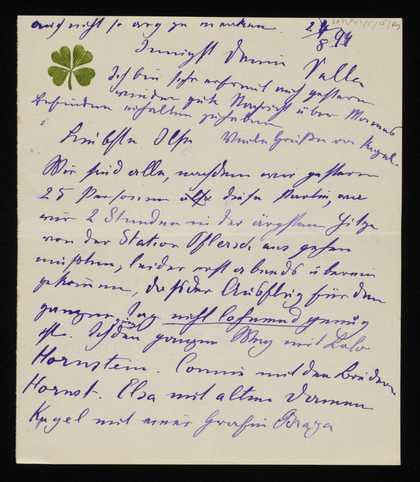 auch nicht so arg zu merken. 24/8 94
Innigst Deine Vally
Ich bin sehr erfreut auch gestern
wieder gute Nachricht über Mamas
Befinden erhalten zu haben
Liebste Ilse Viele Grüße von Kugel.
Wir sind alle, nachdem wir gestern
25 Personen diese Partie, wo
wir 2 Stunden in der ärgsten Hitze
von der Station Pflersch aus gehen
mußten, leider erst abends
gekommen, daß der Ausflug für den
ganzen Tag nicht lohnend genug
ist. Ich ging den ganzen Weg mit Lolo
Hornstein. Connie mit den Brüdern
Hornst. Elsa mit alten Damen
Kugel mit einer Gräfin